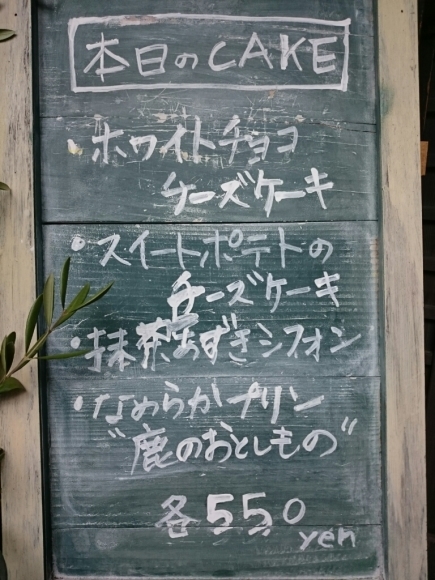 本日のCAKE
・ホワイトチョコ
チーズケーキ
・スイートポテトの
チーズケーキ
・抹茶あずきシフォン
・なめらかプリン
"鹿のおとしもの"
各550
yen